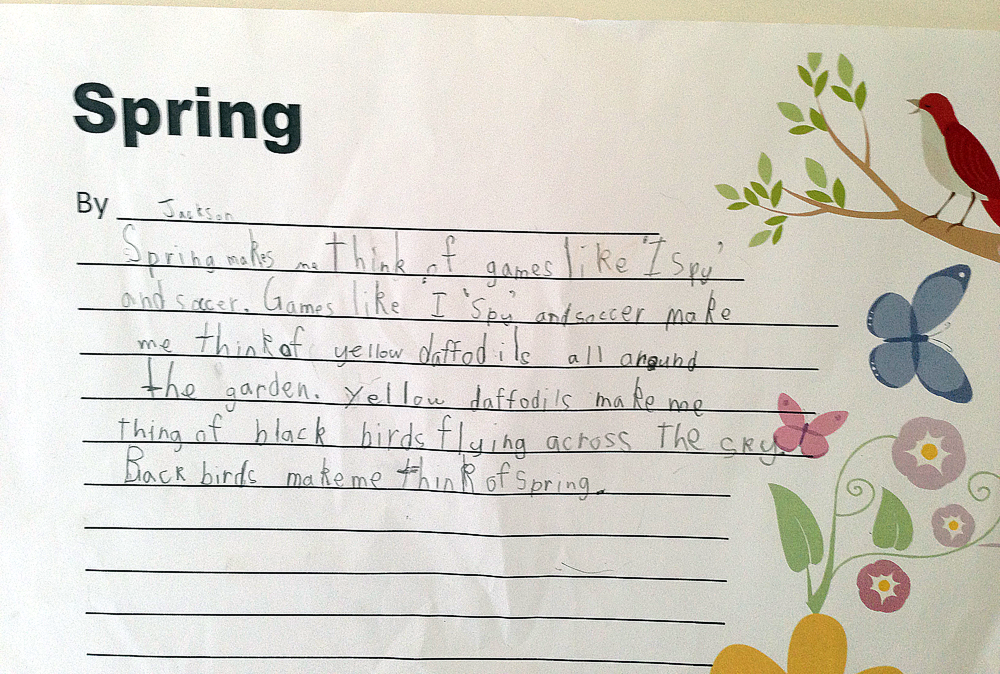 Spring
By Jackson
Spring makes me think of games like 'I Spy'
and soccer. Games like 'I 'Spy' and soccer make
me think of yellow daffodils all around
the garden. Yellow daffodils make me
thing of black birds flying across the sky.
Back birds make me think of Spring.